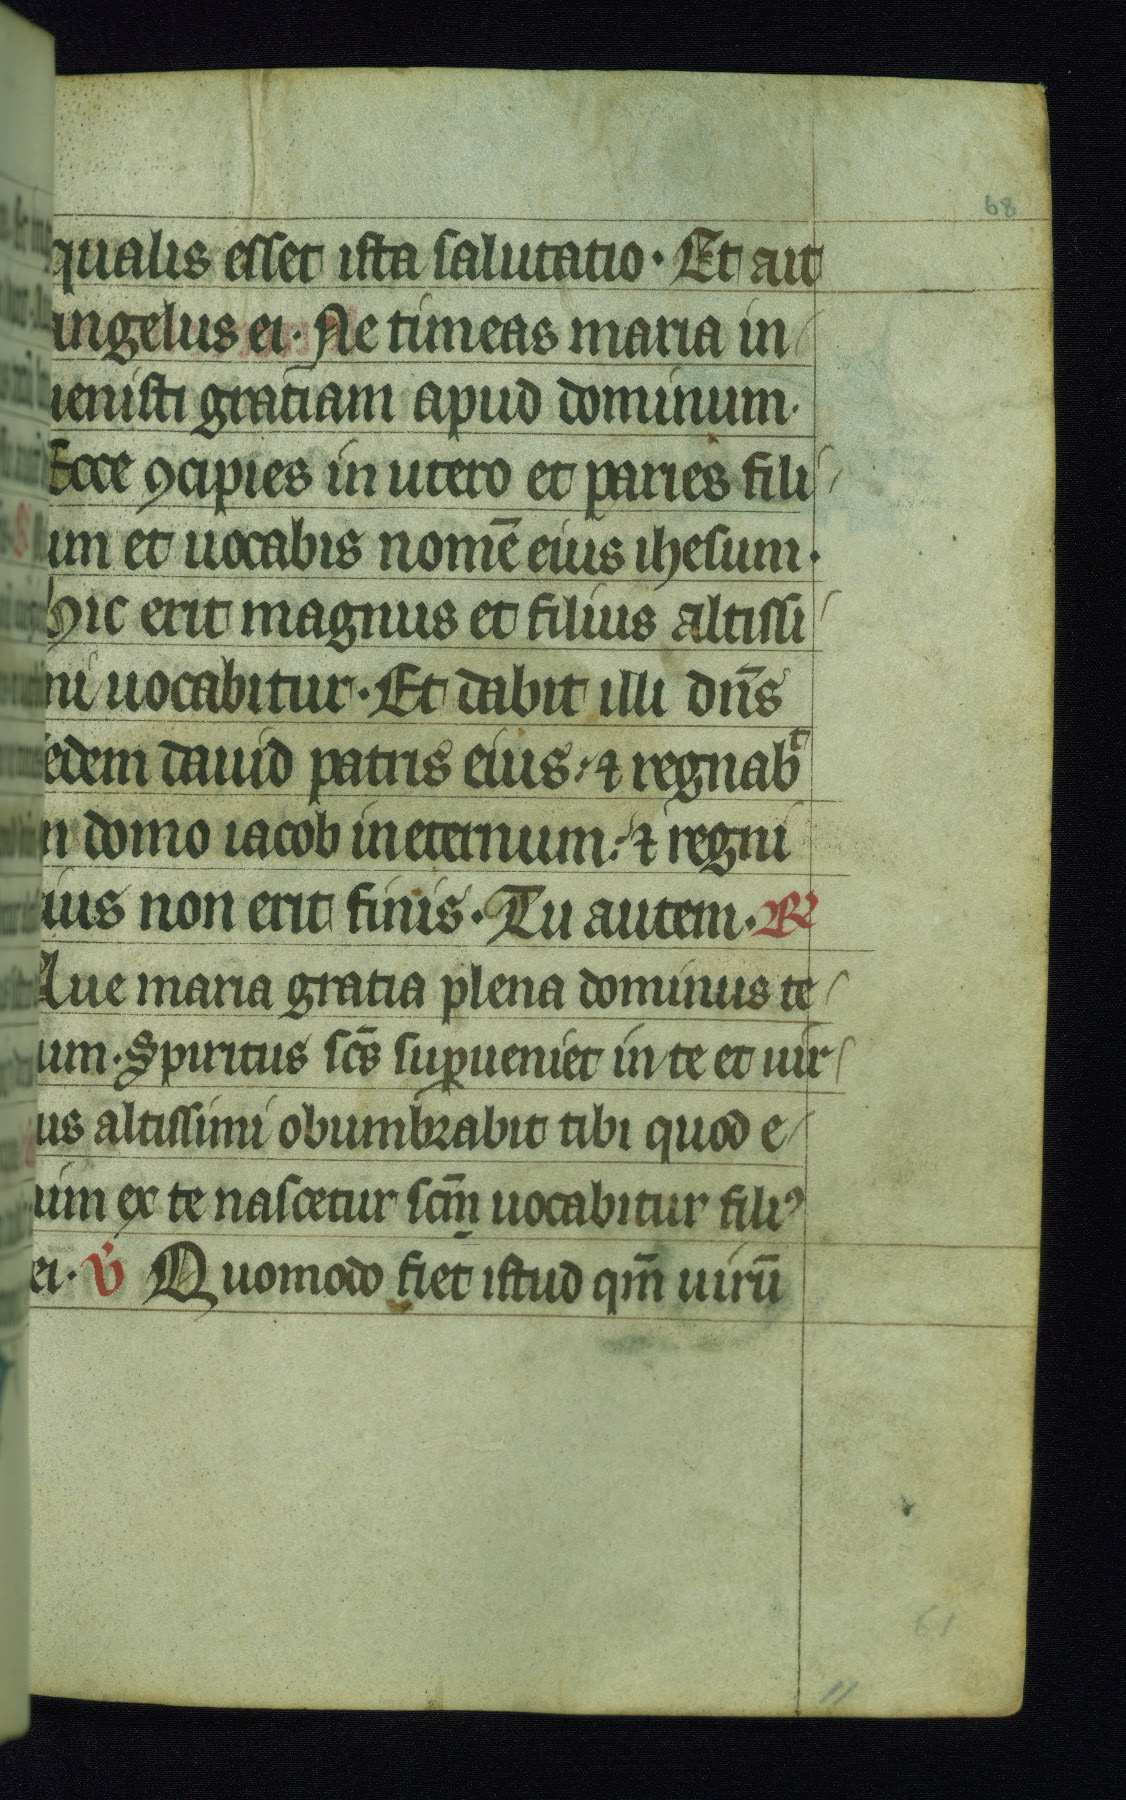 68
qualis esset ista salutatio. Et ait
angelus ei. Ne timeas maria in
uenisti gratiam apud dominum.
Ecce ꝯcipies in utero et paries fili
um et uocabis nomē eius ihesum.
hic erit magnus et filius altissi
mi uocabitur. Et dabit illi dn̄s
sedem dauid patris eius: ⁊ regnabᵗ
in domo iacob in eternum: ⁊ regni
eius non erit finis. Tu autem. ℟
Aue maria gratia plena dominus te
cum. Spiritus sc̄s suꝑueniet in te et uir
tus altissimi obumbrabit tibi quod e
nim ex te nascetur scm̄ uocabitur filiꝰ
dei. ℣ Quomodo fiet istud qm̄ uirū
61
11